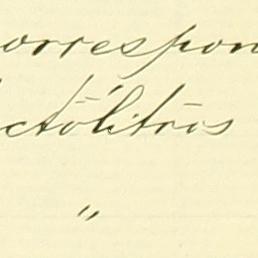 orrespon
ctólitros
"